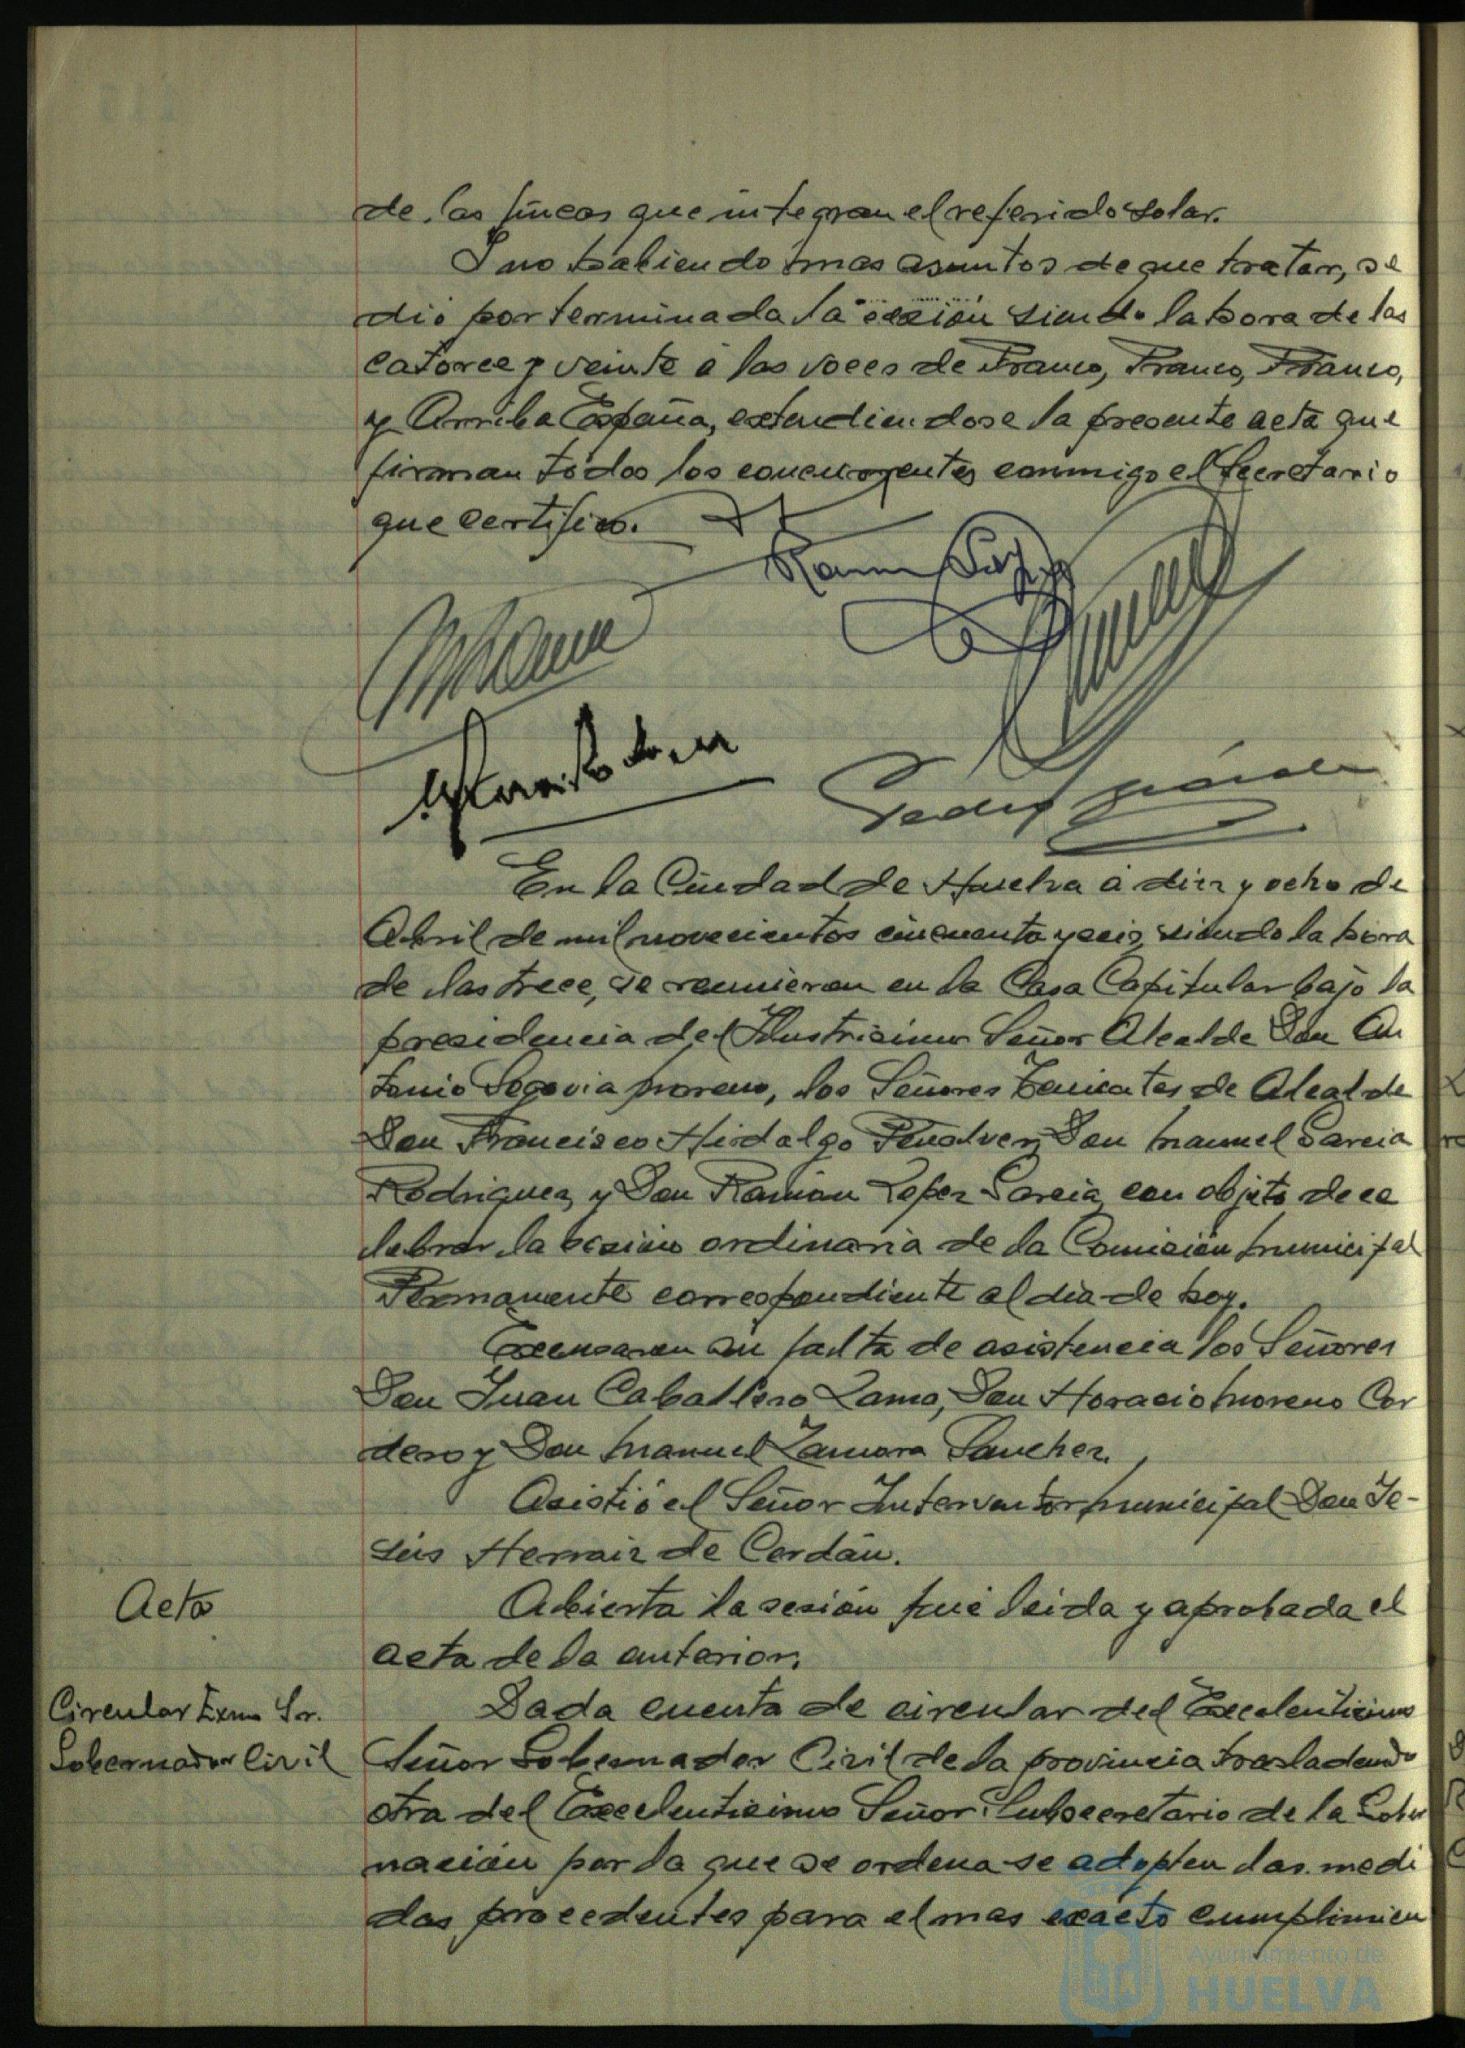 de las fincas que integran el referido solar.
Y no habiendo mas asuntos de que tratar, se
dió por terminada la sesión siendo la hora de las
catorce y veinte a las voces de Franco, Franco, Franco,
y Arriba España, extendiendose la presente acta que
firman todos los concurrentes conmigo el Secretario
que certifico.
En la Ciudad de Huelva a diez y ocho de
Abril de mil novecientos cincuenta y seis, siendo la hora
de las trece, se reunieron en la Casa Capitular bajo la
presidencia del Ilustrisimo Señor Alcalde Don An
tonio Segovia Moreno, los Señores Tenientes de Alcalde
Don Francisco Hidalgo Peñalver, Don Manuel Garcia
Rodriguez, y Don Ramón Lopez Garcia, con objeto de ce
lebrar la sesión ordinaria de la Comisión Municipal
Permanente correspondiente al dia de hoy.
Excusaron su falta de asistencia los Señores
Don Juan Caballero Lama, Don Horacio Moreno Cor
dero y Don Manuel Zamora Sanchez.
Asistió el Señor Interventor Municipal Don Je-
sús Herraiz de Cerdán.
Acta
Abierta la sesión fué leida y aprobada el
acta de la anterior.
Circular Exmo Sr.
Gobernador Civil
Dada cuenta de circular del Excelentisimo
Señor Gobernador Civil de la provincia trasladando
otra del Excelentisimo Señor Subsecretario de la Gober
nación por la que se ordena se adopten las medi
das procedentes para el mas exacto cumplimien
Ayuntamiento de
HUELVA